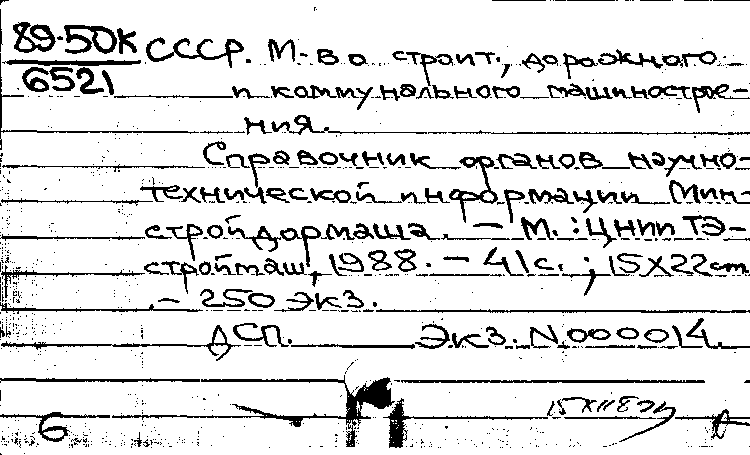 89-50К СССР. М-во строит., дорожного
6521 и коммунального машинострое-
ния.
Справочник органов научно-
технической информации Мин-
стройдормаша. — М. : ЦНИИТЭ-
строймаш, 1988. — 41 с. ; 15X22 см
. — 250 экз.
ДСП. Экз. N.000014.
6